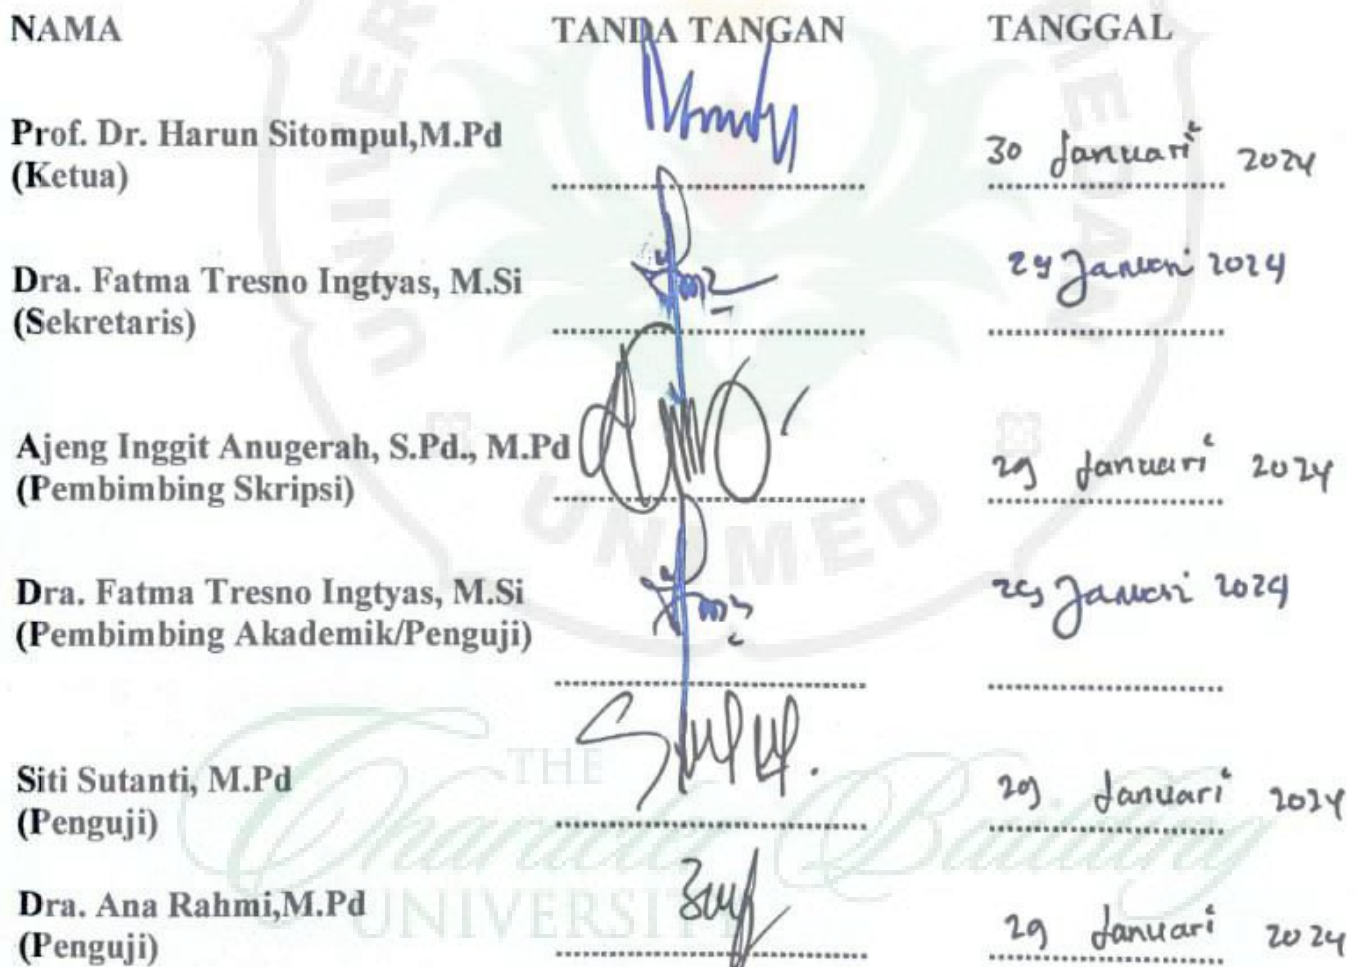 NAMA TANDA TANGAN TANGGAL
Prof. Dr. Harun Sitompul,M.Pd
(Ketua) 30 Januari 2024
Dra. Fatma Tresno Ingtyas, M.Si 29 Januari 2024
(Sekretaris)
Ajeng Inggit Anugerah, S.Pd., M.Pd
(Pembimbing Skripsi) 29 Januari 2024
Dra. Fatma Tresno Ingtyas, M.Si 29 Januari 2024
(Pembimbing Akademik/Penguji)
Siti Sutanti, M.Pd
(Penguji) 29 Januari 2024
Dra. Ana Rahmi,M.Pd
(Penguji) 29 Januari 2024
UNIMED
THE
Character Building
UNIVERSITY